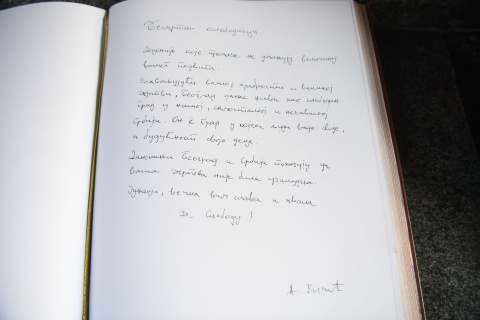 Бесмртни ослободиоци,
Деценије које пролазе не умањују величину
вашег подвига.
Захваљујући вашој храбрости и великој
жртви, Београд данас живи као слободан
град у мирној, самосталној и независној
Србији. Он је град у којем људи виде своју,
а будућност своје деце.
Данашњи Београд и Србија показују да
ваша жртва није била узалудна.
Јунаци, вечна вам слава и хвала
за Слободу!
А. Вучић